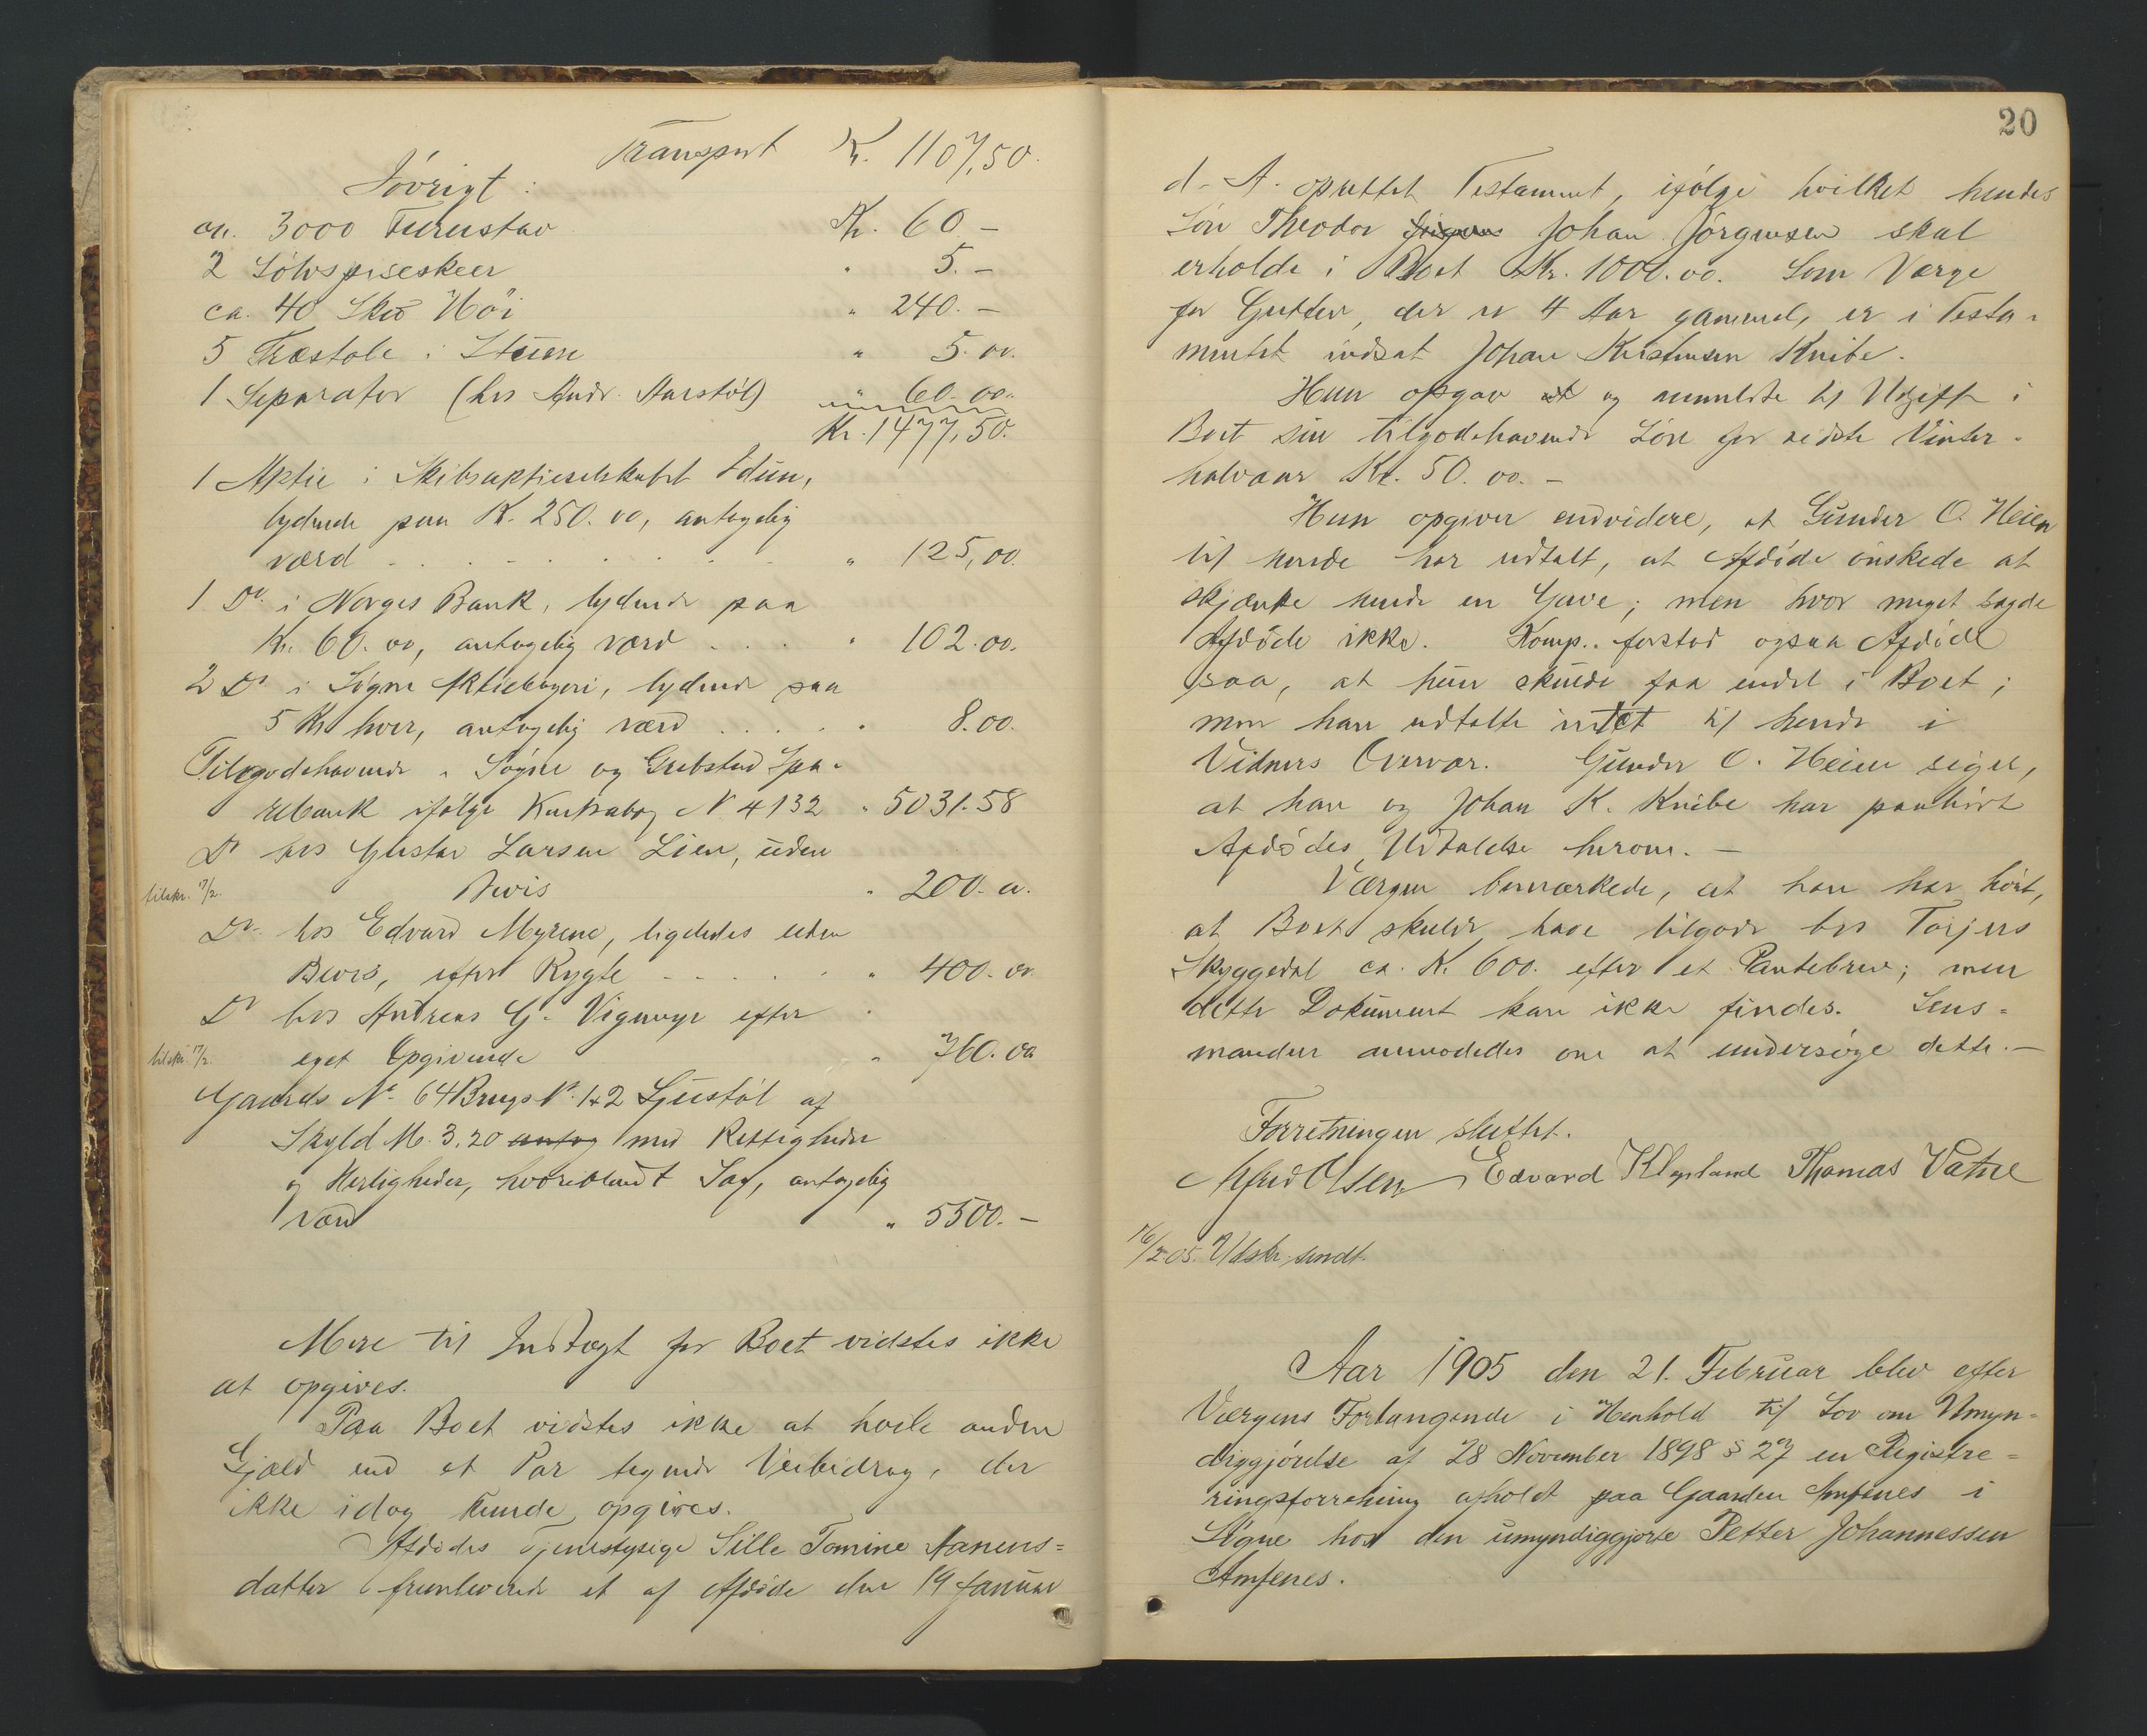 Transport Kr. 1107,50.
Iövrigt:
ca. 3000 Furustav Kr. 60 –
2 Sölvspiseskeer " 5. –
ca. 40 Skđ Höi " 240. –
5 Træstole i Stuen " 5. oo.
1 Separator (hos Andr. Aarstöl) " 60. oo.
Kr. 1477,50.
1 Aktie i Skibsaktieselskabet Idun,
lydende paa Kr. 250. oo, antagelig
værd . . . . . . . " 125,00.
1 Do i Norges Bank, lydende paa
Kr. 60. oo, antagelig værd . . . . " 102. oo.
2 Do i Sögne Aktiebageri, lydende paa
5 Kr hver, antagelig værd . . . . . " 8.00.
Tilgodehavende i Sögne og Greibstad Spa-
rebank ifölge Kontrabog No 4132 " 5031.58
Do hos Gustav Larsen Lien, uden
tilskr. 17/2. Bevis " 200. oo.
Do hos Edvard Myrene, ligeledes uden
Bevis, efter Rygte – – – . . " 400. oo
Do hos Andreas G. Vignmyr efter
tilskr. 17/2. eget Opgivende " 760. oo
Gaards No 64 Brugs No 1 & 2 Ljustöl af
Skyld M. 3.20 antag med Rettigheder
og Herligheder, hvoriblandt Sag, antagelig
værd " 5500. –
Mere til Indtægt for Boet vidstes ikke
at opgives.
Paa Boet vidstes ikke at hvile anden
Gjæld end et Par tegnede Veibidrag, der
ikke idag kunde opgives.
Afdödes Tjenestepige Sille Tomine Aanens=
datter fremleverede et af Afdöde den 19 Januar
20
d. A. oprettet Testament, ifölge hvilket hendes
Sön Theodor Johan Jörgensen skal
erholde i Boet Kr. 1000. oo. Som Værge
for Gutten, der er 4 Aar gammel, er i Testa-
mentet indsat Johan Kristensen Knibe.
Hun opgav at og anmeldte til Udgift i
Boet sin tilgodehavende Lön for sidste Vinter-
halvaar Kr. 50. oo. –
Hun opgiver endvidere, at Gunder O. Heien
til hende har udtalt, at Afdöde önskede at
skjænke hende en Gave; men hvor meget sagde
Afdöde ikke. Komp. forstod ogsaa Afdöde
saa, at hun skulde faa endel i Boet;
men han udtalte intet til hende i
Vidners Overvær. Gunder O. Heien siger,
at han og Johan K. Knibe har paahört
Afdödes Udtalelse herom. –
Værgen bemærkede, at han har hört,
at Boet skulde have tilgode hos Torjus
Skyggedal ca. Kr. 600. efter et Pantebrev; men
dette Dokument kan ikke findes. Lens=
manden anmodedes om at undersöge dette. –
Forretningen sluttet.
Alfred Olsen Edvard Klepland Thomas Vatne
16/2 05. Udskr. sendt.
Aar 1905 den 21. Februar blev efter
Værgens Forlangende i Henhold til Lov om Umyn=
diggjörelse af 28 November 1898 § 27 en Registre=
ringsforretning afholdt paa Gaarden Amfenes i
Sögne hos den umyndiggjorte Petter Johannessen
Amfenes.